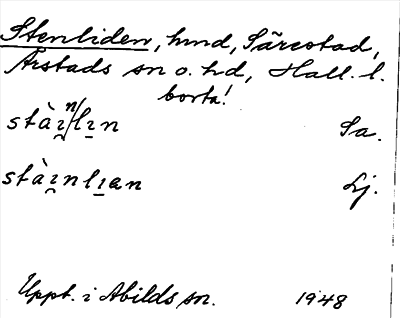 Stenliden, hmd, Särestad,
Årstads sn o. hd, Hall. l.
borta!
stàı̯ⁿ/lɪn Sa.
stàı̯nlɪan Lj.
Uppt. i Abilds sn. 1948